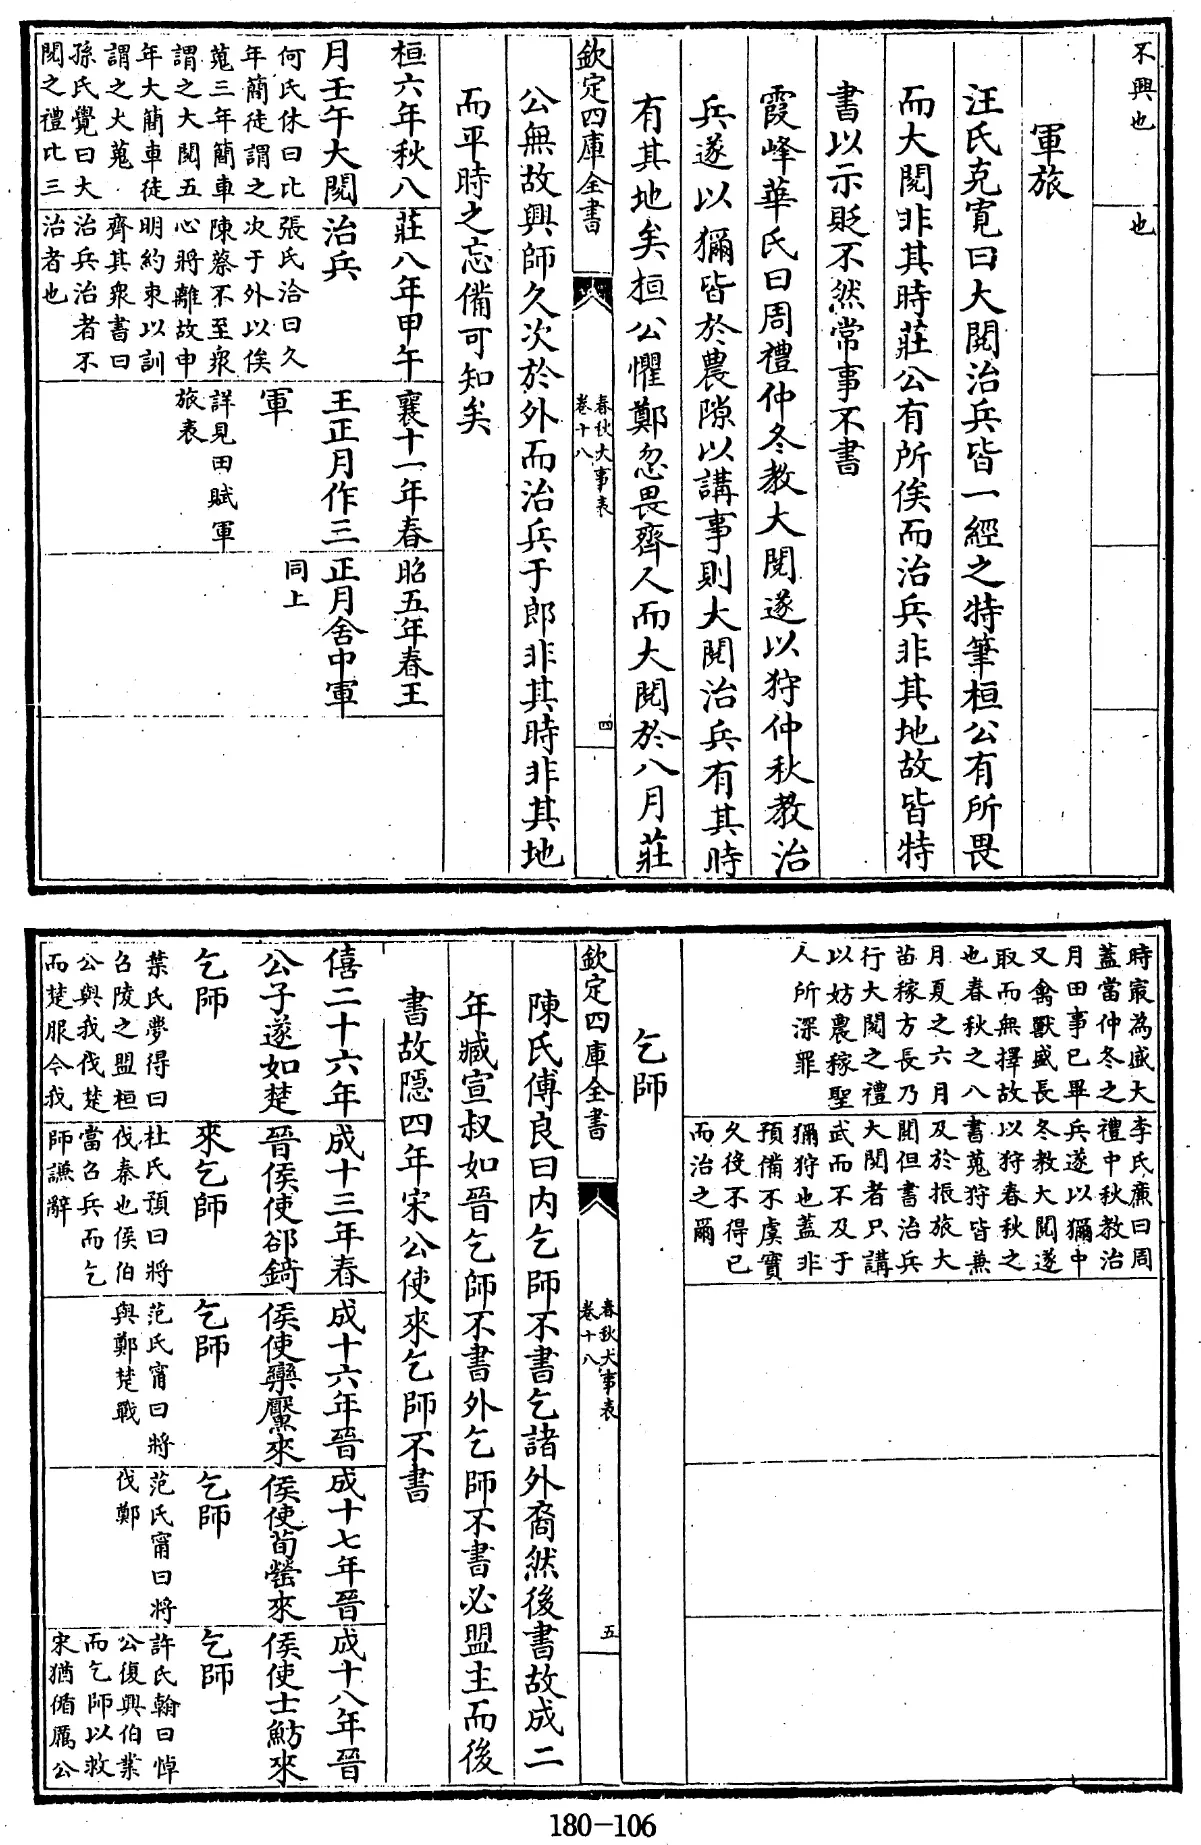 不興也
也
軍旅
汪氏克寛曰大閱治兵皆一經之特筆桓公有所畏
而大閱非其時莊公有所俟而治兵非其地故皆特
書以示貶不然常事不書
霞峰華氏曰周禮仲冬教大閱遂以狩仲秋教治
兵遂以獮皆於農隙以講事則大閱治兵有其時
有其地矣桓公懼鄭忽畏齊人而大閱於八月莊
欽定四庫全書
春秋大事表
卷十八
四
公無故興師久次於外而治兵于郎非其時非其地
而平時之忘備可知矣
桓六年秋八
月壬午大閱
何氏休曰比
年簡徒謂之
蒐三年簡車
謂之大閱五
年大簡車徒
謂之大蒐
孫氏覺曰大
閱之禮比三
莊八年甲午
治兵
張氏洽曰久
次于外以俟
陳蔡不至衆
心將離故申
明約束以訓
齊其衆書曰
治兵治者不
治者也
襄十一年春
王正月作三
軍
詳見田賦軍
旅表
昭五年春王
正月舍中軍
同上
時最為盛大
蓋當仲冬之
月田事已畢
又禽獸盛長
取而無擇故
也春秋之八
月夏之六月
苗稼方長乃
行大閱之禮
以妨農稼聖
人所深罪
李氏廉曰周
禮中秋教治
兵遂以獮中
冬教大閱遂
以狩春秋之
書蒐狩皆兼
及於振旅大
閱但書治兵
大閱者只講
武而不及于
獮狩也蓋非
預備不虞實
久後不得已
而治之爾
乞師
欽定四庫全書
春秋大事表
卷十八
五
陳氏傅良曰内乞師不書乞諸外裔然後書故成二
年臧宣叔如晉乞師不書外乞師不書必盟主而後
書故隱四年宋公使來乞師不書
僖二十六年
公子遂如楚
乞師
葉氏夢得曰
召陵之盟桓
公與我伐楚
而楚服今我
成十三年春
晉侯使郤錡
來乞師
杜氏預曰將
伐秦也侯伯
當召兵而乞
師謙辭
成十六年晉
侯使欒黶來
乞師
范氏甯曰將
與鄭楚戰
成十七年晉
侯使荀罃來
乞師
范氏甯曰將
伐鄭
成十八年晉
侯使士魴來
乞師
許氏翰曰悼
公復興伯業
而乞師以救
宋猶循厲公
180-106